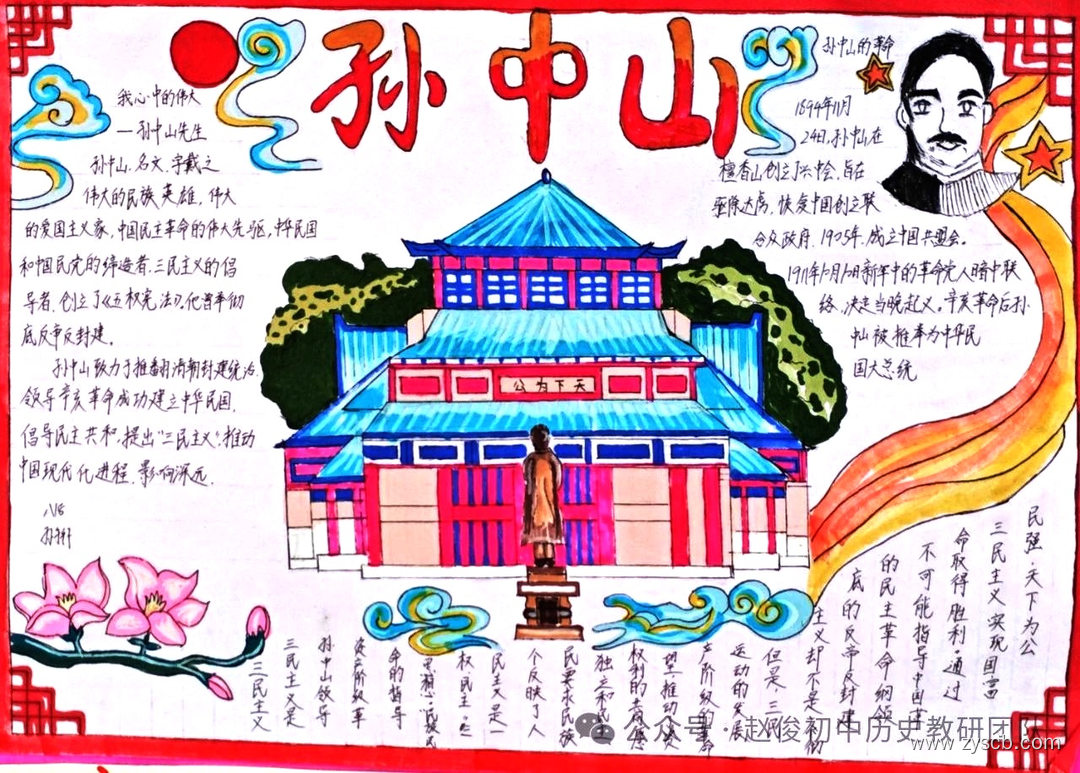 孙中山
我心中的伟大
—孙中山先生
孙中山,名文,字载之
伟大的民族英雄,伟大
的爱国主义家,中国民主革命的伟大先驱,中华民国
和中国民党的缔造者,三民主义的倡
导者,创立了《五权宪法》,他首举彻
底反帝反封建。
孙中山致力于推翻清朝封建统治,
领导辛亥革命成功建立中华民国,
倡导民主共和,提出"三民主义",推动
中国现代化进程,影响深远.
孙中山的革命
1894年11月
24日,孙中山在
檀香山创立了兴中会,旨在
驱除达虏,恢复中国创立联
合众政府,1905年,成立中国共盟会。
1911年10月10日新军中的革命党人暗中联
络,决定当晚起义。辛亥革命后孙
中山被推奉为中华民
国大总统
公为下天
三民主义
三民主义是
孙中山领导
资产阶级革
命的指导
权民主
民主义是一
个反映了人
民要求民族
独立和民主
权利的共同愿
望,推动了资
产阶级的革命
运动的发展
但是,三民
主义却不是彻
底的反帝反封建
的民主革命纲领
不可能指导中国革
命取得胜利,通过
三民主义实现国富
民强,天下为公
公众号·赵俊初中历史教研团队
www.zyscb.com